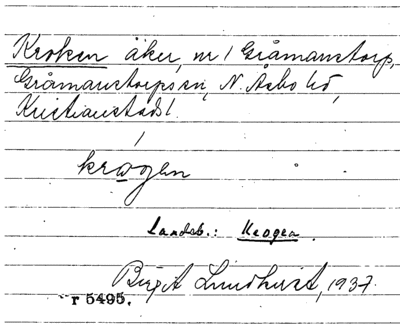 Kroken åker, nr 1 Gråmanstorp,
Gråmanstorps sn, N. Åsbo hd,
Kristianstads l.
krogen
Landsb.: Krogen.
Birgit Lindkvist, 1937.
r 5495.